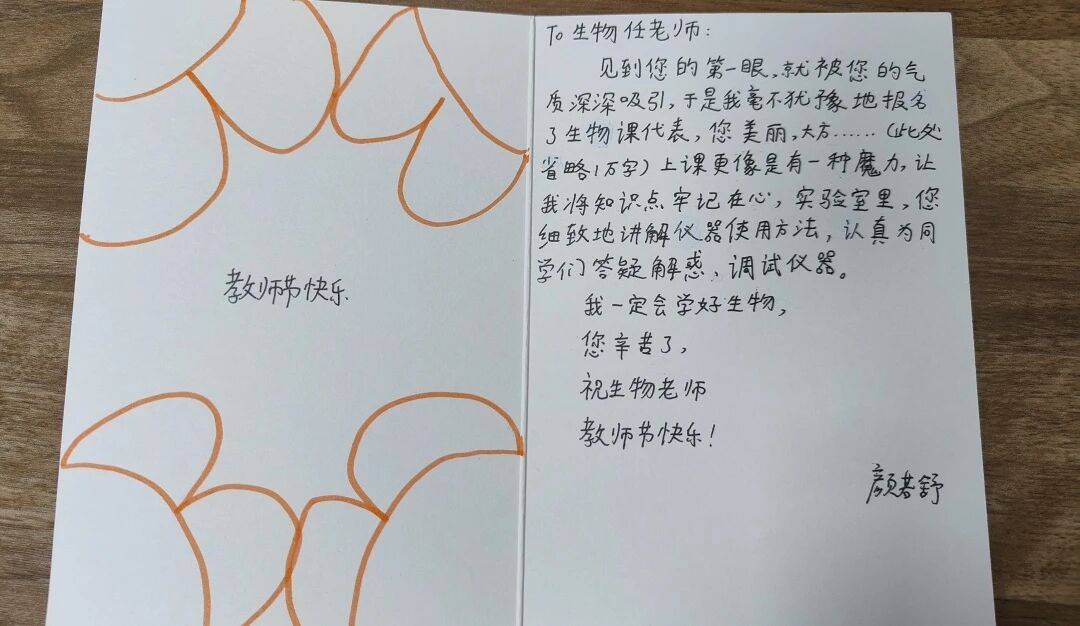 教师节快乐
To 生物任老师：
见到您的第一眼，就被您的气
质深深吸引，于是我毫不犹豫地报名
了生物课代表，您美丽，大方……（此处
省略1万字）上课更像是有一种魔力，让
我将知识点牢记在心，实验室里，您
细致地讲解仪器使用方法，认真为同
学们答疑解惑，调试仪器。
我一定会学好生物，
您辛苦了，
祝生物老师
教师节快乐！
颜若舒